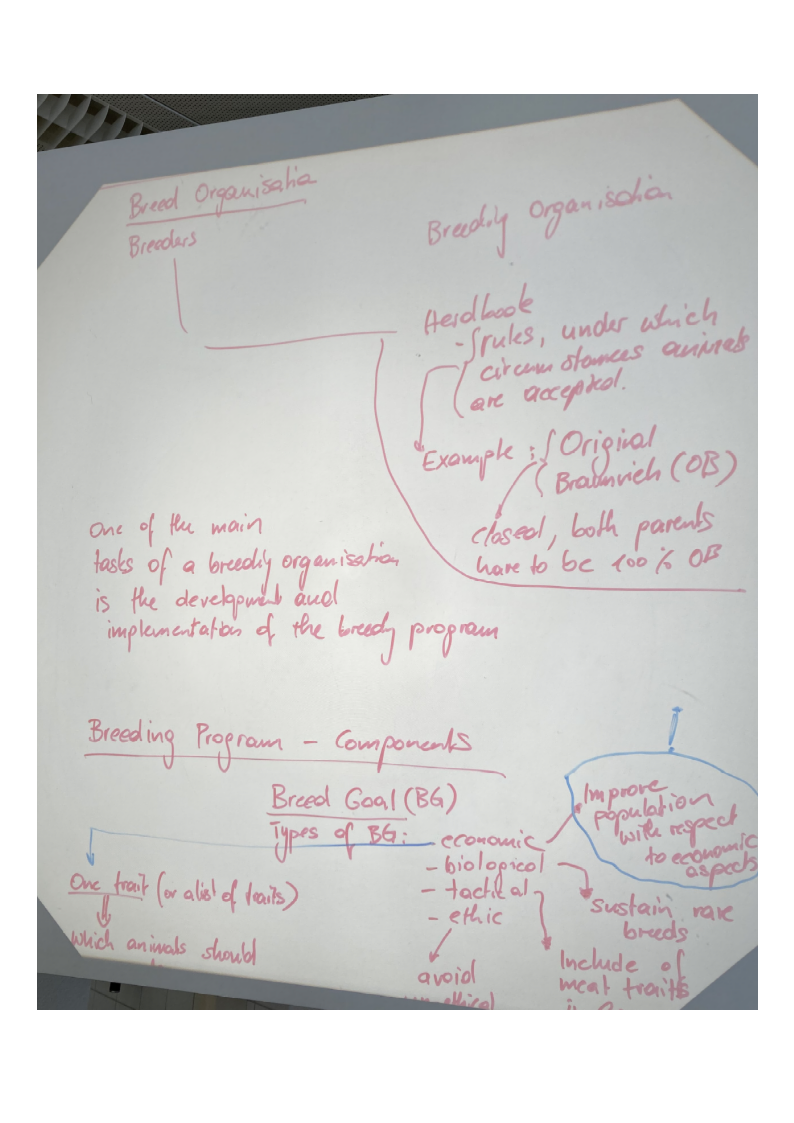 Breed Organisatio
Breeders
Breedily Organisation
Herdbook
- rules, under which
circumstances animals
are accepted.
Example : Original
Braunvieh (OB)
closed, both parents
have to be 100 % OB
One of the main
tasks of a breedig organisation
is the development and
implementation of the breedy program
Breeding Program - Components
Breed Goal (BG)
Types of BG:
- economic
- biological
- tactical
- ethic
!
Improve
population
with respect
to economic
aspects
One trait (or a list of traits)
which animals should
sustain rare
breeds
Include of
meat traits
avoid